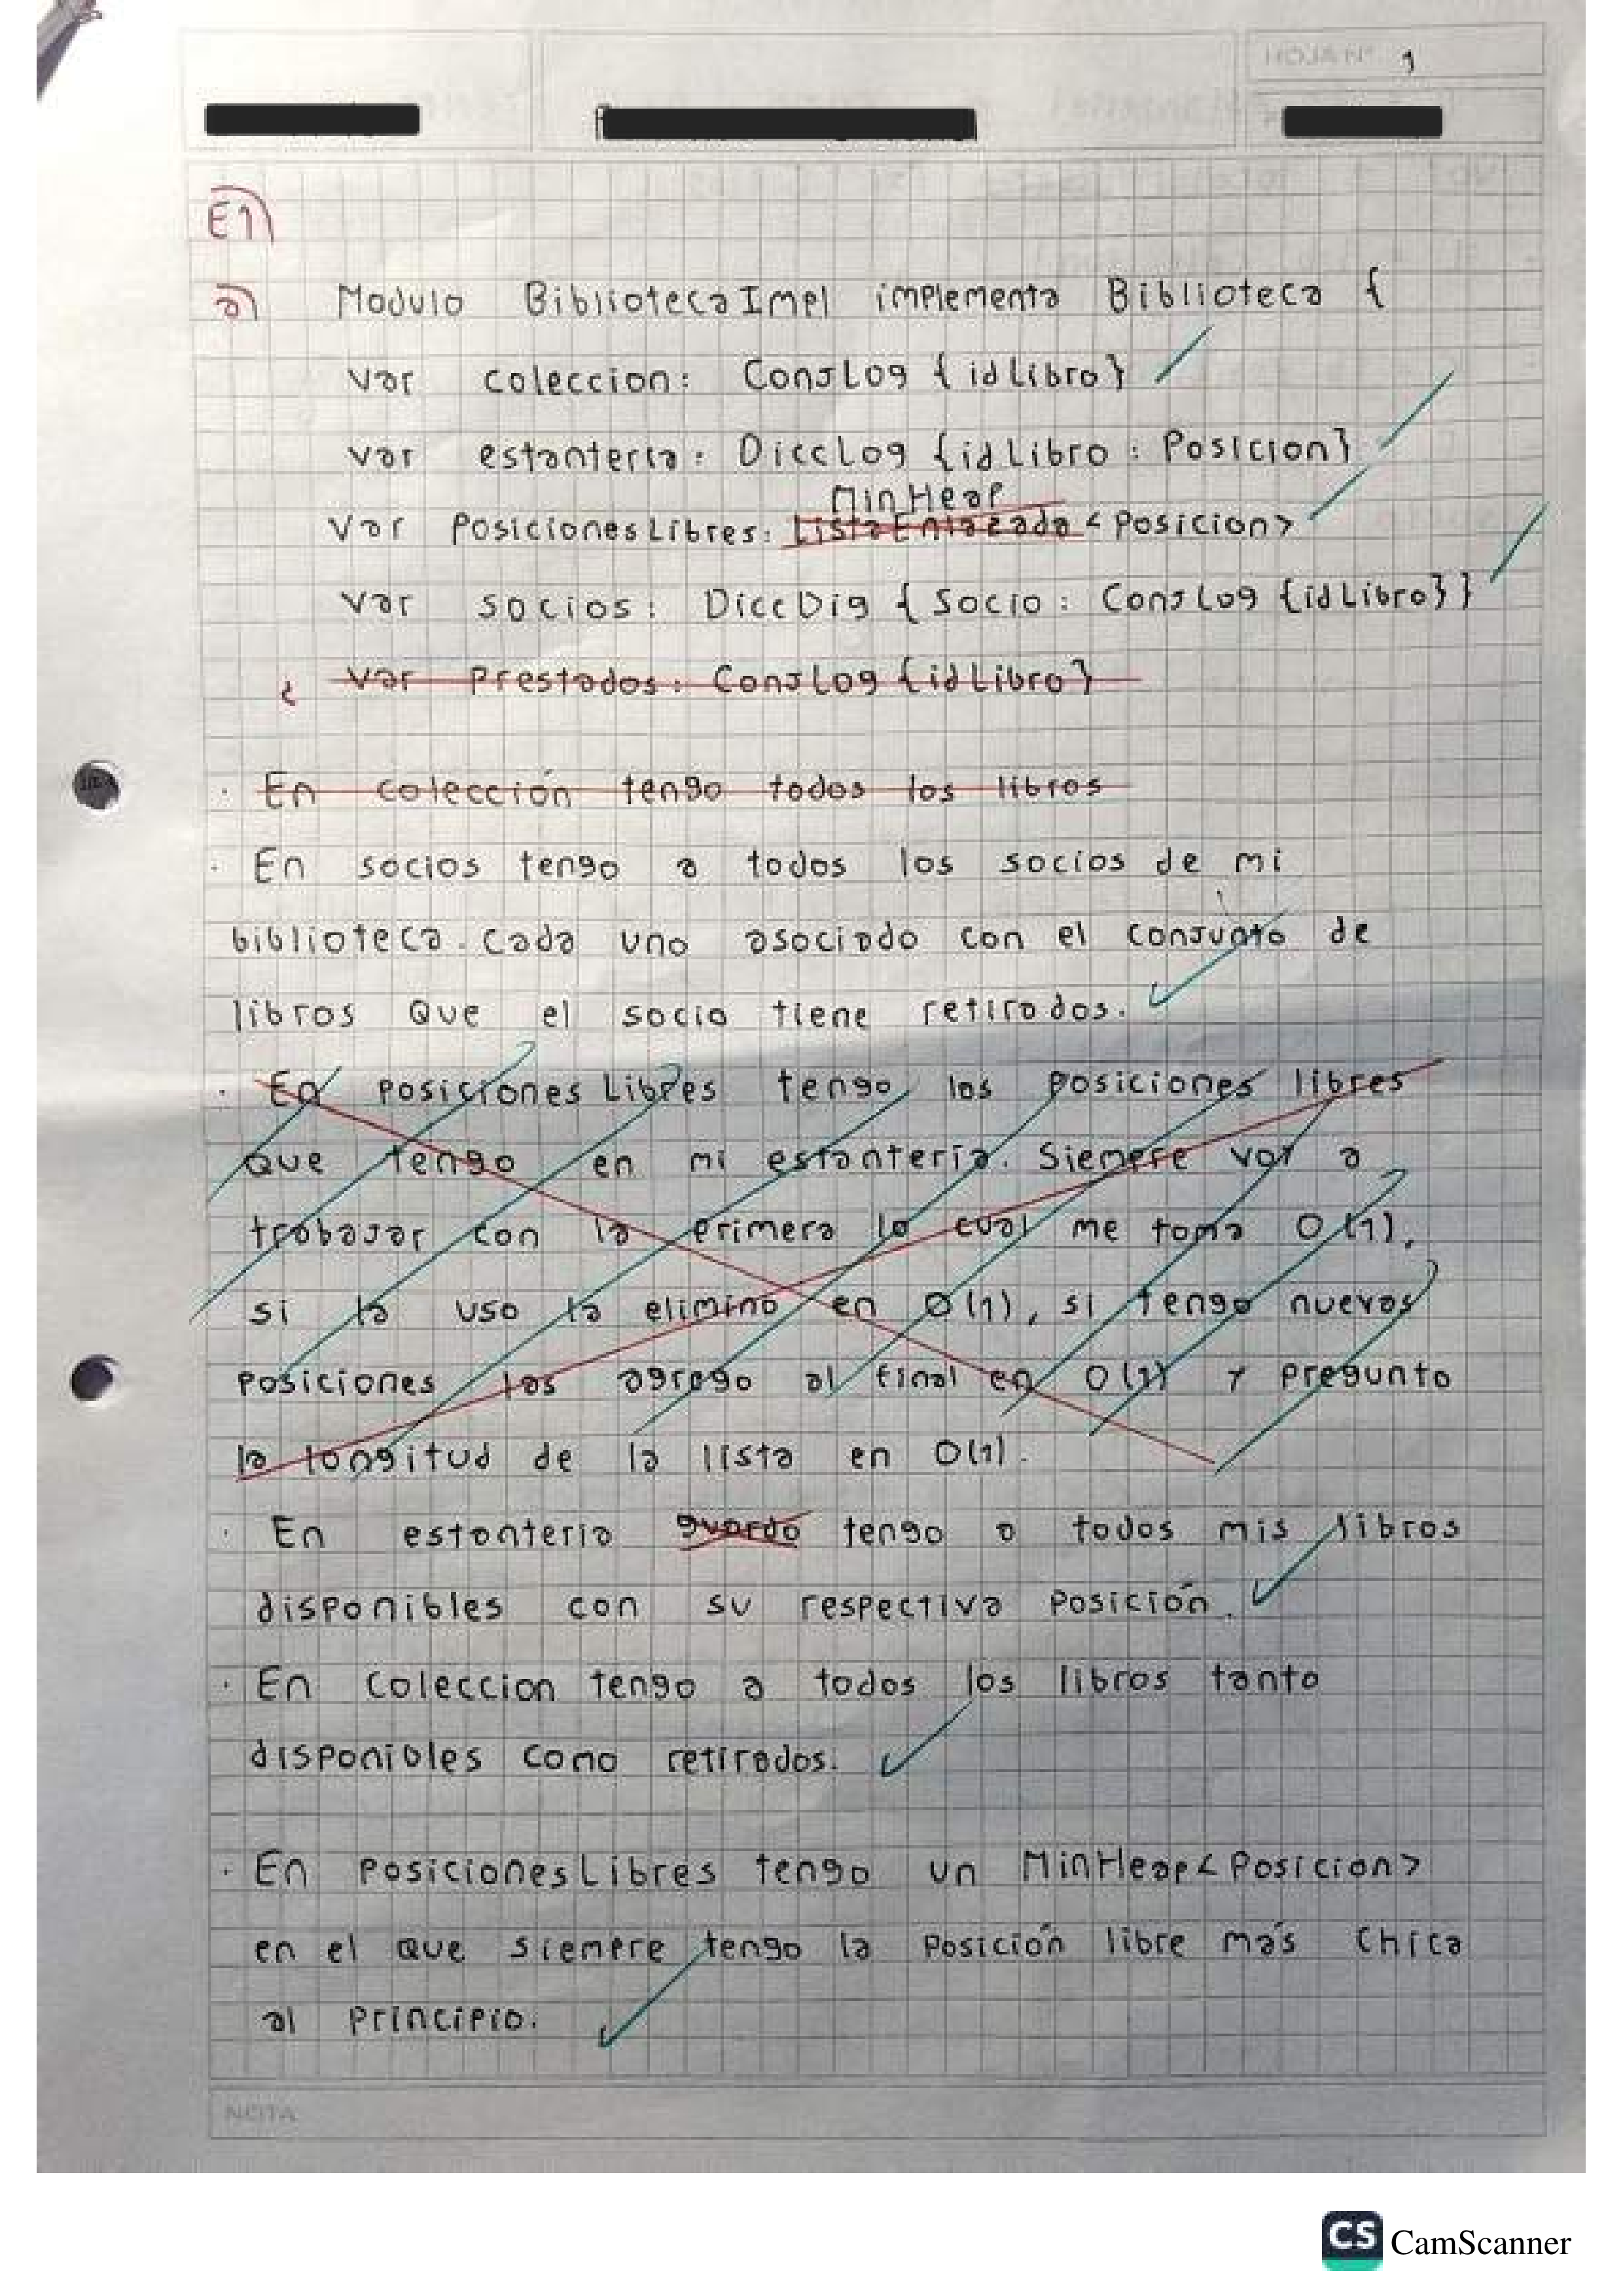 HOJA Nº 1
E1)
a) Modulo BibliotecaImpl implementa Biblioteca {
var coleccion: ConjLog {idLibro}
var estanteria: DiccLog {idLibro : Posicion}
MinHeap
Var PosicionesLibres: ListaEnlazada <Posicion>
var socios: DiccDig {Socio : ConjLog {idLibro}}
var Prestados: ConjLog {idLibro}
· En colección tengo todos los libros
· En socios tengo a todos los socios de mi
biblioteca. Cada uno asociado con el conjunto de
libros que el socio tiene retirados.
· En PosicionesLibres tengo las posiciones libres
que tengo en mi estantería. Siempre voy a
trabajar con la primera lo cual me toma O(1),
si la uso la elimino en O(1), si tengo nuevas
posiciones las agrego al final en O(1) y pregunto
la longitud de la lista en O(1).
· En estanteria guardo tengo a todos mis libros
disponibles con su respectiva Posición.
· En Coleccion tengo a todos los libros tanto
disponibles como retirados.
· En PosicionesLibres tengo un MinHeap<Posicion>
en el que siempre tengo la Posición libre más chica
al principio.
NOTA
CS CamScanner